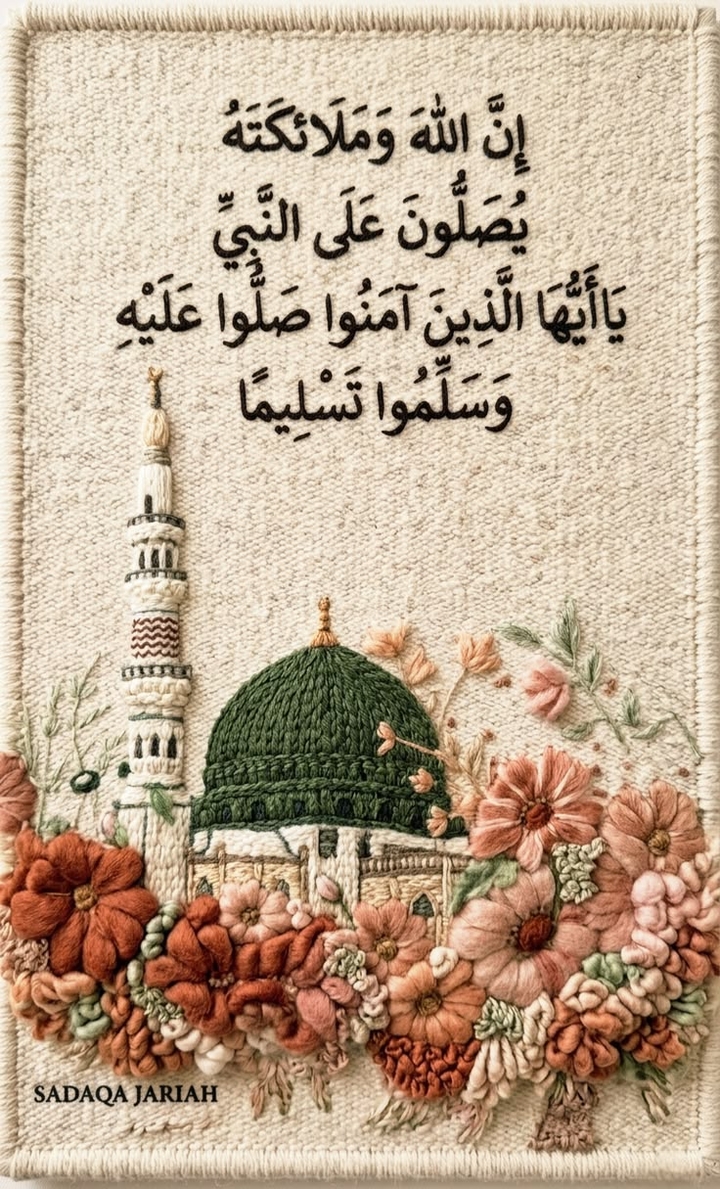 إِنَّ اللهَ وَمَلَائكَتَهُ
يُصَلُّونَ عَلَى النَّبِيِّ
يَاأَيُّهَا الَّذِينَ آمَنُوا صَلُّوا عَلَيْهِ
وَسَلِّمُوا تَسْلِيمًا
SADAQA JARIAH